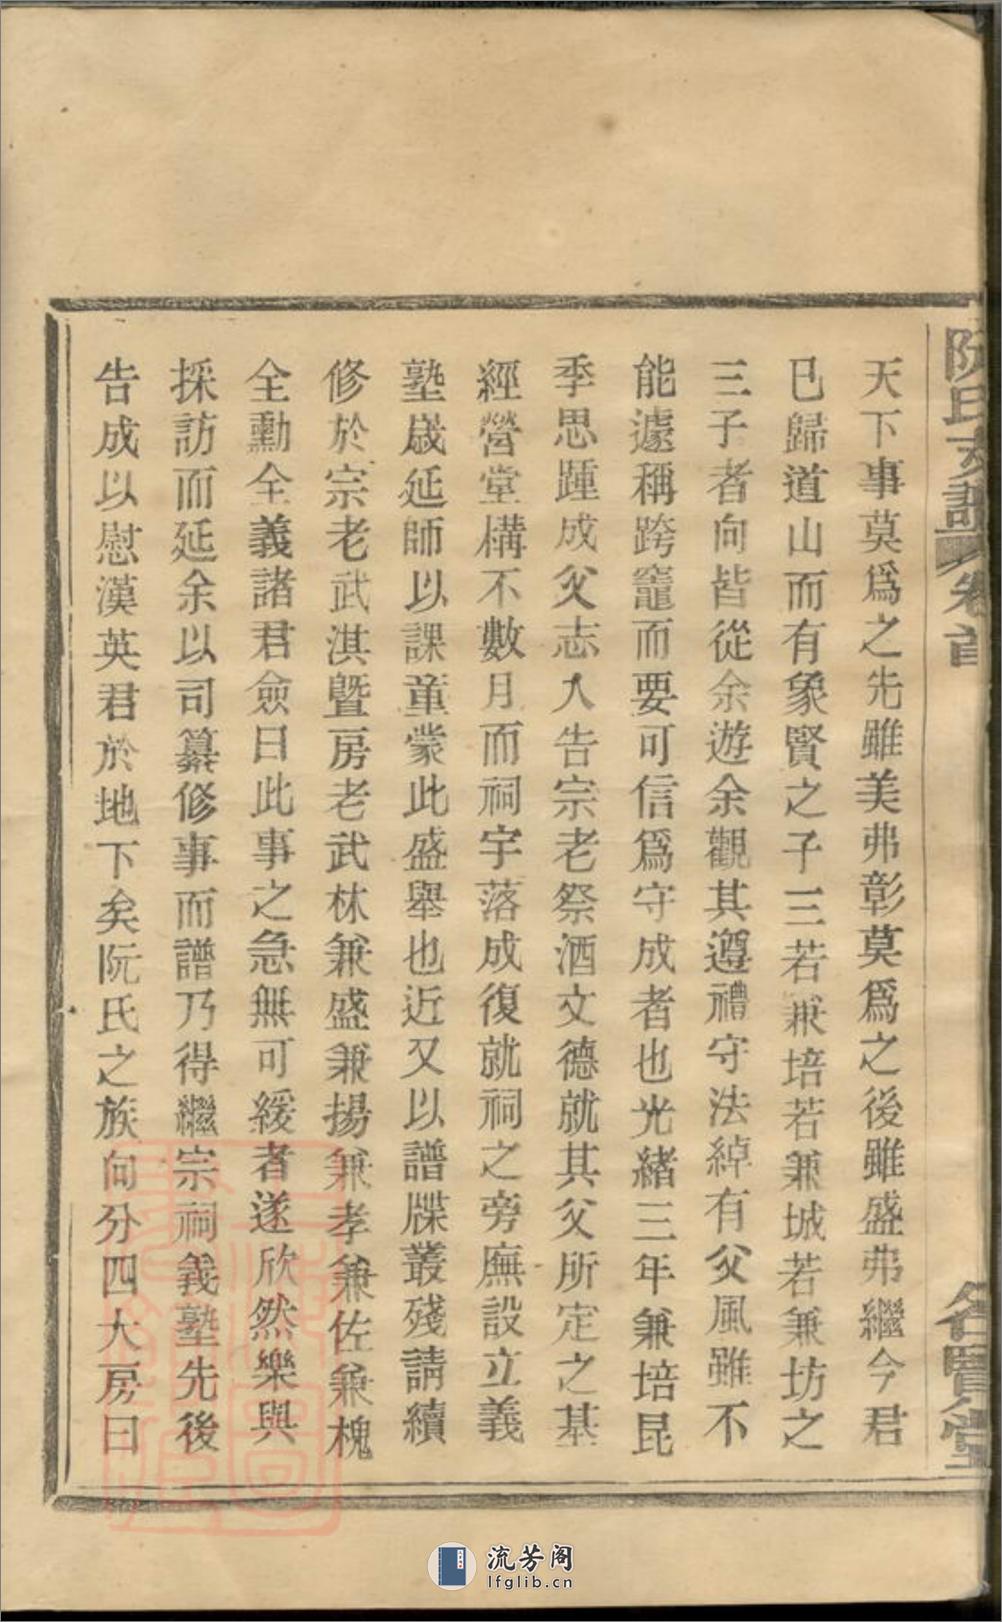 阮氏支譜 卷首 名賢堂
天下事莫爲之先雖美弗彰莫爲之後雖盛弗繼今君
已歸道山而有象賢之子三若兼培若兼城若兼坊之
三子者向皆從余遊余觀其遵禮守法綽有父風雖不
能遽稱跨竈而要可信爲守成者也光緒三年兼培昆
季思踵成父志入告宗老祭酒文德就其父所定之基
經營堂構不數月而祠宇落成復就祠之旁廡設立義
塾歲延師以課童蒙此盛舉也近又以譜牒叢殘請續
修於宗老武淇曁房老武林兼盛兼揚兼孝兼佐兼槐
全勳全義諸君僉曰此事之急無可緩者遂欣然樂與
採訪而延余以司纂修事而譜乃得繼宗祠義塾先後
告成以慰漢英君於地下矣阮氏之族向分四大房曰
流芳阁
lfglib.cn